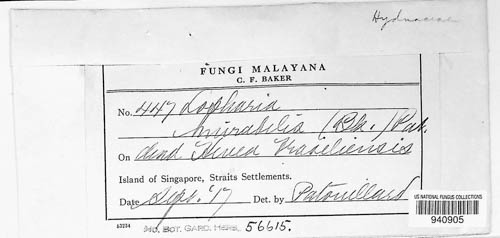 Hydnaceae
FUNGI MALAYANA
C. F. BAKER
No. 447 Lopharia
mirabilis (Bk.) Pat.
On dead Hevea Brasiliensis
Island of Singapore, Straits Settlements.
Date Sept. '17 Det. by Patouillard
US NATIONAL FUNGUS COLLECTIONS
940905
53234
MO. BOT. GARD. HERB. 56615.